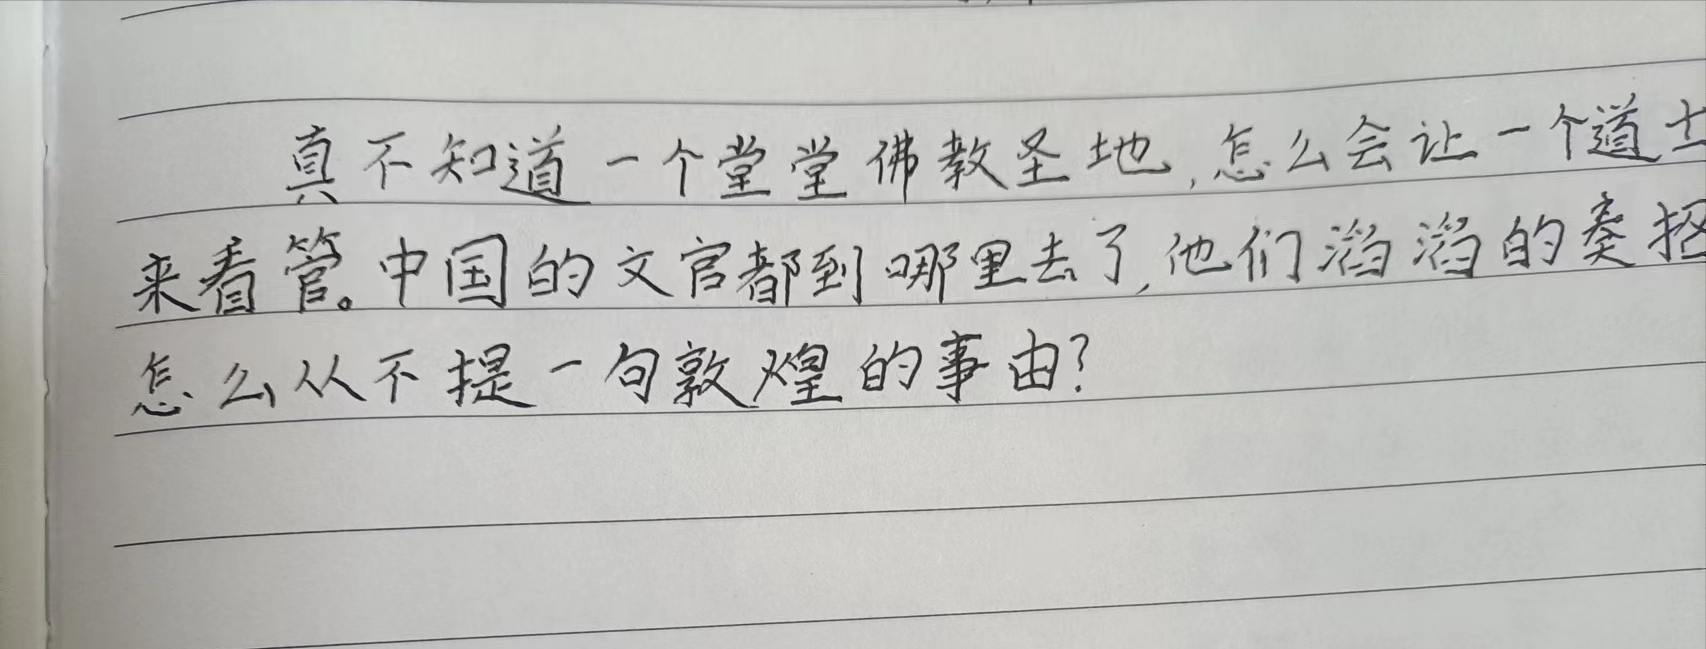 真不知道一个堂堂佛教圣地,怎么会让一个道士
来看管。中国的文官都到哪里去了,他们滔滔的奏折
怎么从不提一句敦煌的事由?